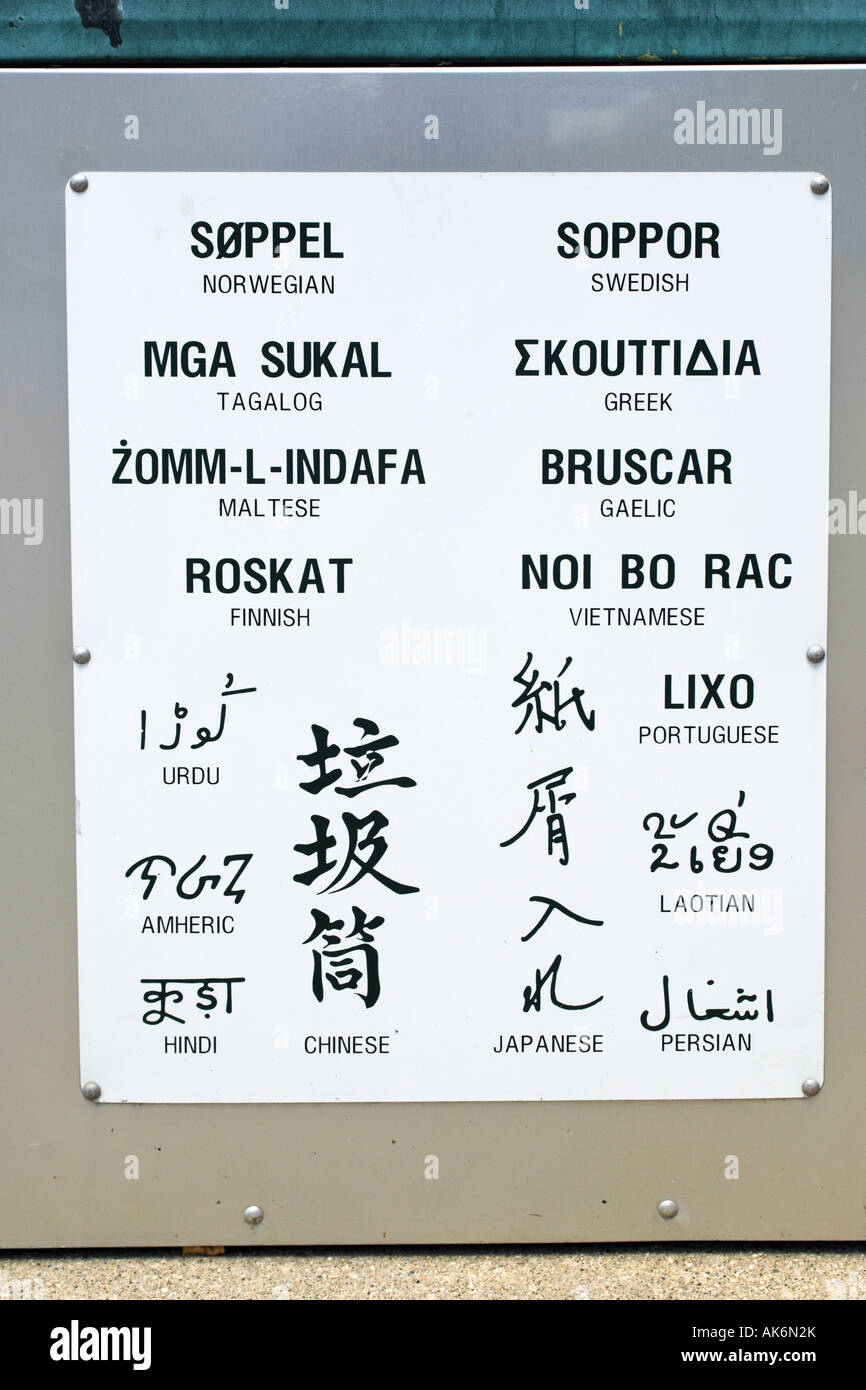 SØPPEL
NORWEGIAN
SOPPOR
SWEDISH
MGA SUKAL
TAGALOG
ΣΚΟUΠΙΔΙΑ
GREEK
ŻOMM-L-INDAFA
MALTESE
BRUSCAR
GAELIC
ROSKAT
FINNISH
NOI BO RAC
VIETNAMESE
کُوڑا
URDU
垃圾筒
CHINESE
紙屑入れ
JAPANESE
LIXO
PORTUGUESE
AMHERIC
LAOTIAN
कूड़ा
HINDI
اشغال
PERSIAN
alamy
Image ID: AK6N2K
www.alamy.com